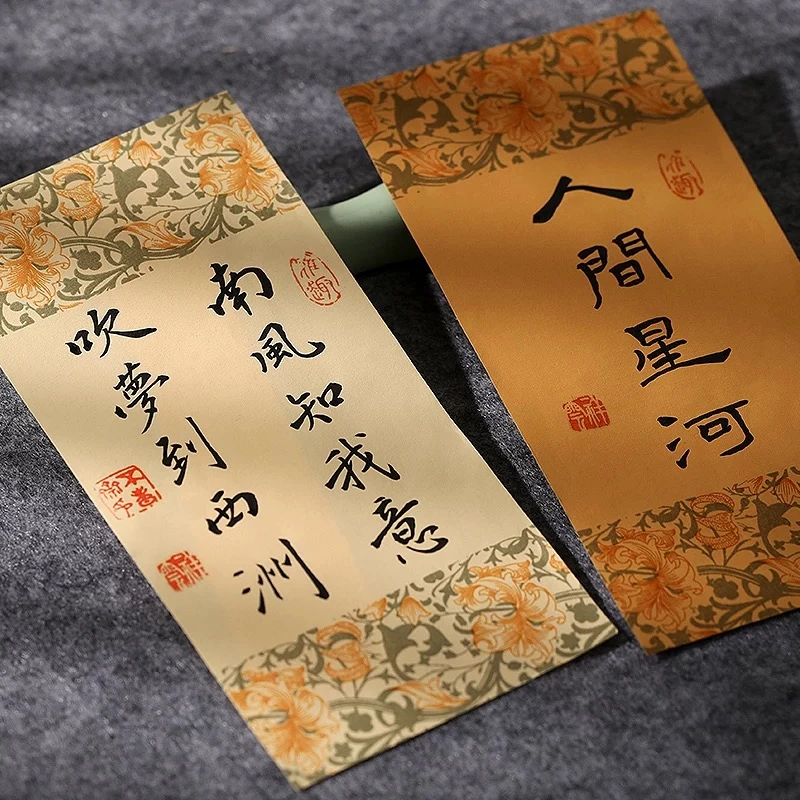 南風知我意
吹夢到西洲
人間星河